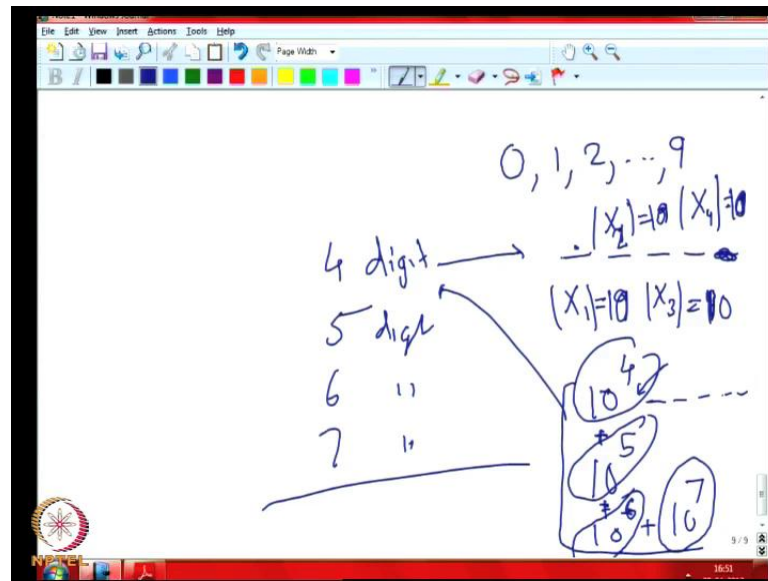 File Edit View Insert Actions Tools Help
Page Width
B I
0, 1, 2, ..., 9
|X2|=10 |X4|=10
4 digit
|X1|=10 |X3|=10
5 digt
10^4
6 "
+
10^5
7 "
+
10^6 + 10^7
9/9
NPTEL
16:51